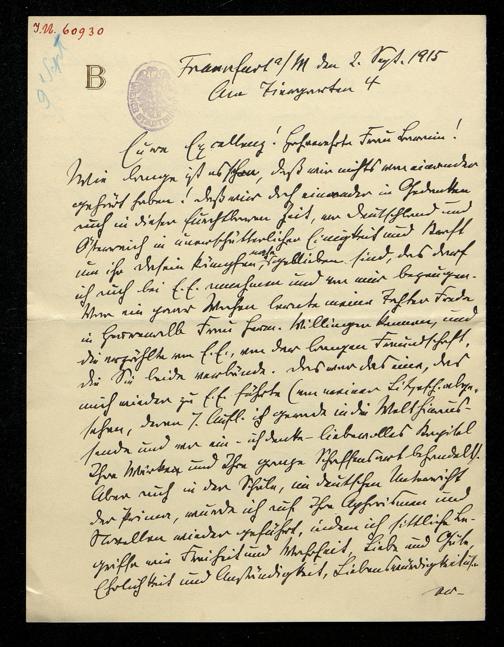 I.N. 60930
9 Sept
B
Frankfurt a/M den 2. Sept. 1915
Am Tiergarten 4
Eure Exzellenz! Hochverehrte Frau Baronin!
Wie lange ist es schon, daß wir nichts von einander
gehört haben! Daß wir doch einander in Gedanken
auch in dieser furchtbaren Zeit, wo Deutschland und
Österreich in unerschütterlicher Einigkeit und Kraft
um ihr Dasein kämpfen, nah geblieben sind, das darf
ich auch bei E.E. annehmen und von mir bezeugen.
Vor ein paar Wochen lernte meine Tochter Frida
in Herrenalb Frau Herm. Willingen kennen, und
die erzählte von E.E., von der langen Freundschaft,
die Sie beide verbände. Das war das eine, das
mich wieder zu E.E. führte (von meiner Litgesch. abge-
sehen, deren 7. Aufl. ich gerade in die Welt hinaus-
sende und wo ein - ich denke - liebevolles Kapitel
Ihr Wirken und Ihre ganze Schaffensart behandelt).
Aber auch in der Schule, im deutschen Unterricht
der Prima, wurde ich auf Ihre Aphorismen und
Novellen wieder geführt, indem ich sittliche Be-
griffe wie Freiheit und Wahrheit, Liebe und Güte,
Ehrlichkeit und Anständigkeit, Liebenswürdigkeit u.